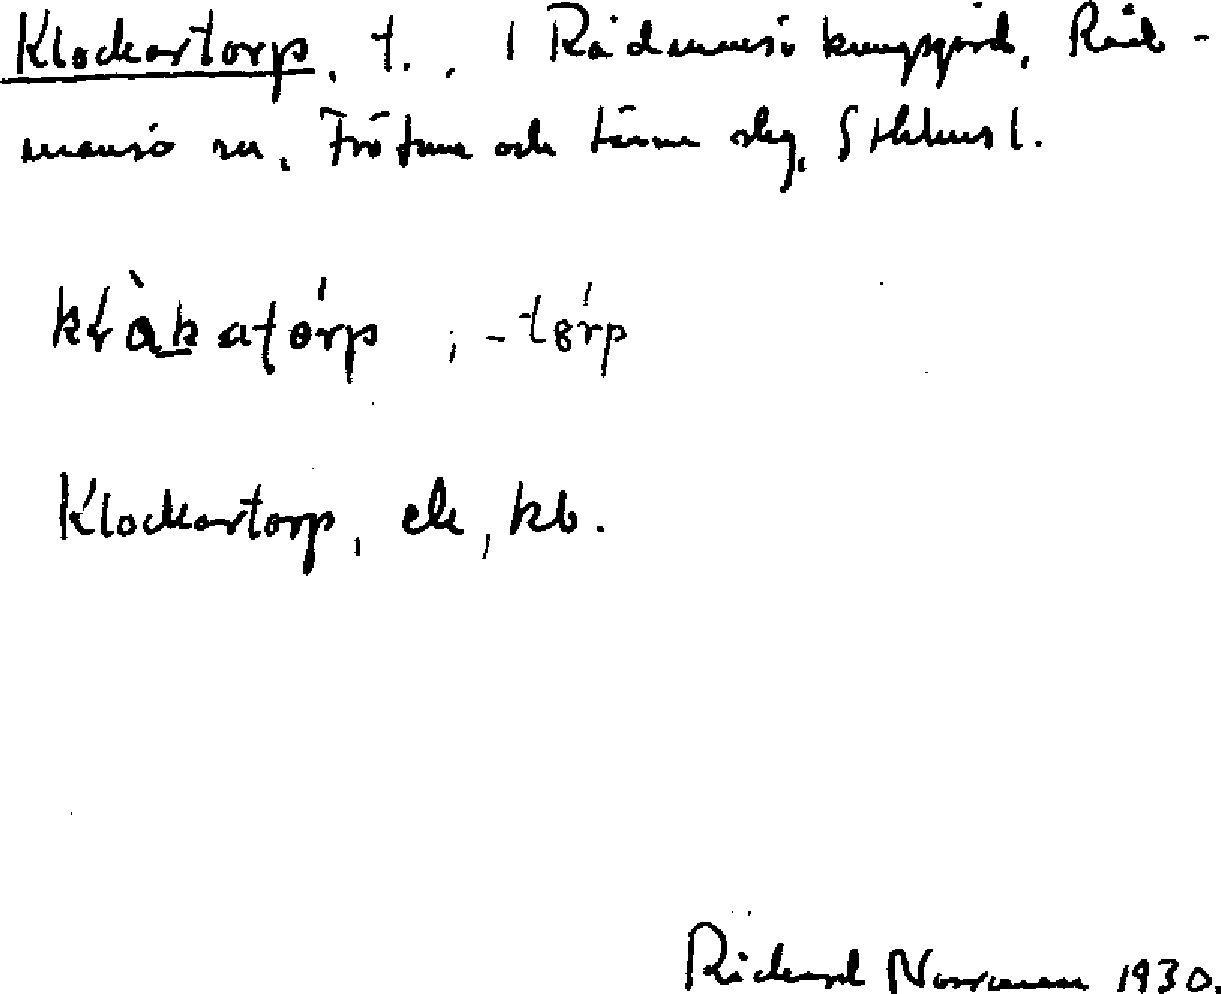 Klockartorp, t., 1 Rådmansö kungsgård, Råd-
mansö sn, Frötuna och Länna skg, Sthlms l.
klàkatórp ; -tórp
Klockartorp, ek, kb.
Rickard Norrman 1930.